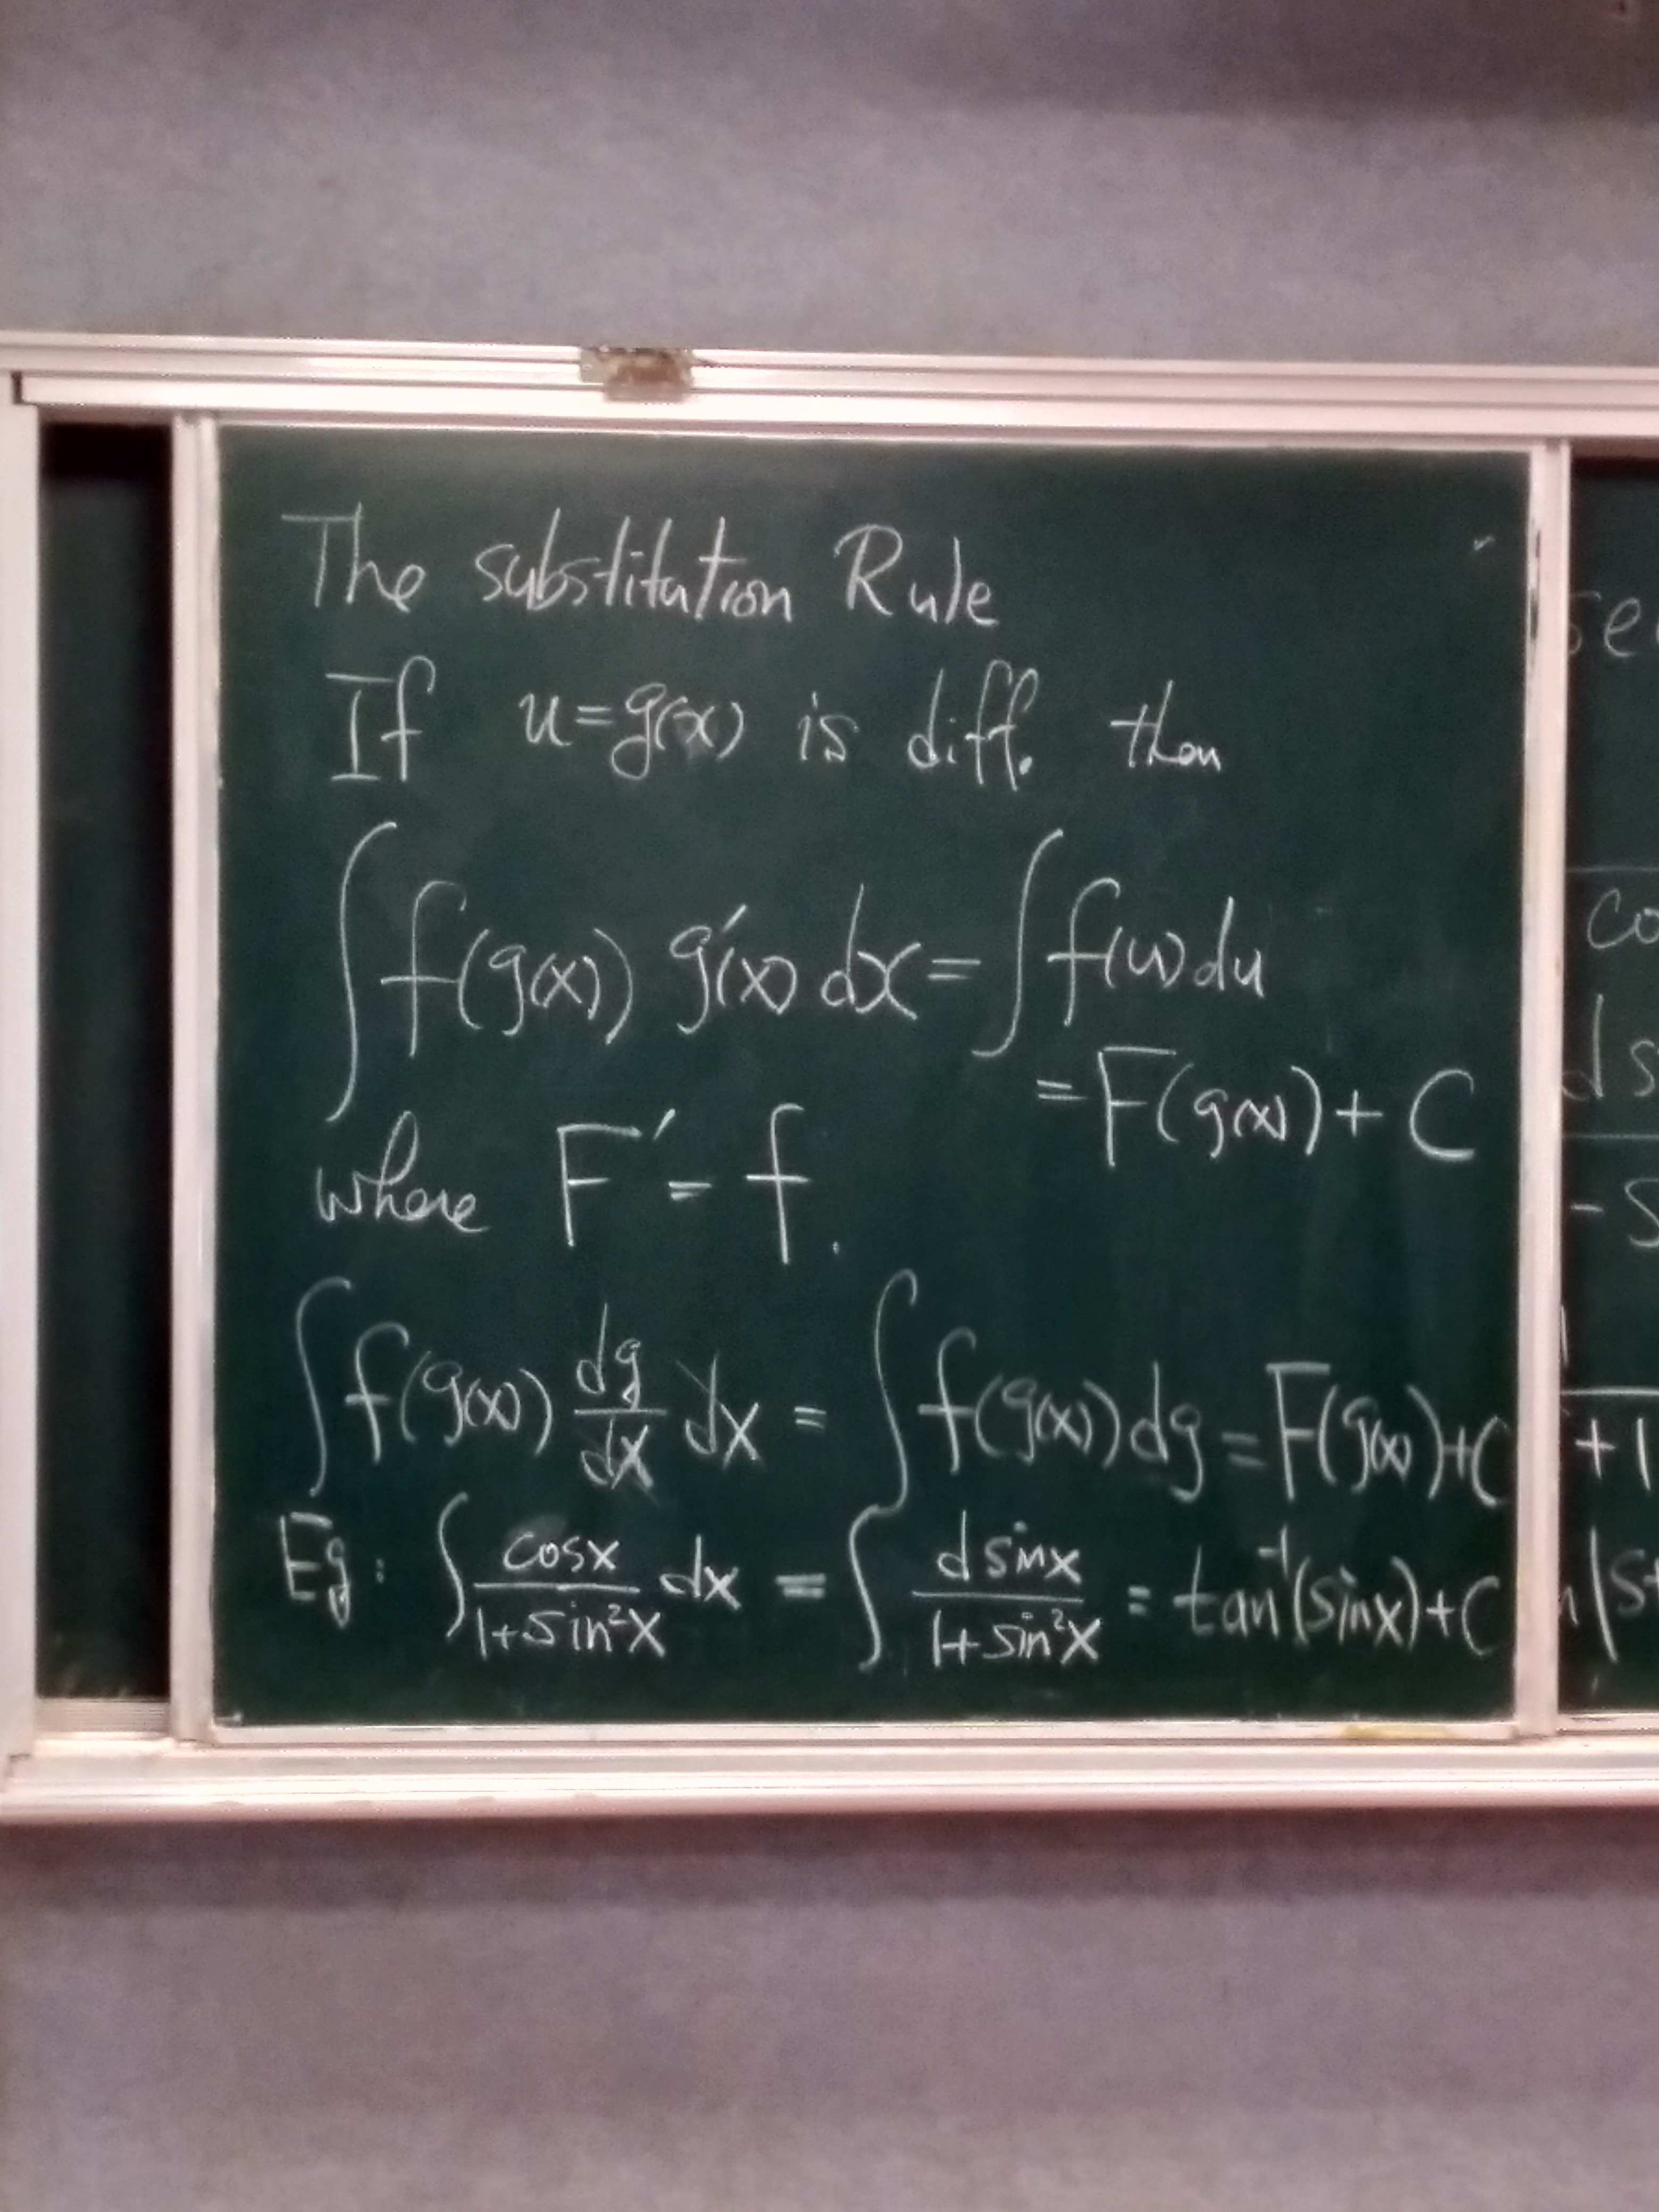 The substitution Rule
If u=g(x) is diff. then
∫ f(g(x)) g'(x) dx = ∫ f(u) du
= F(g(x)) + C
where F' = f.
∫ f(g(x)) dg/dx dx = ∫ f(g(x)) dg = F(g(x))+C
Eg: ∫ cosx/(1+sin²x) dx = ∫ d sinx/(1+sin²x) = tan⁻¹(sinx)+C
co
ds
-s
+1